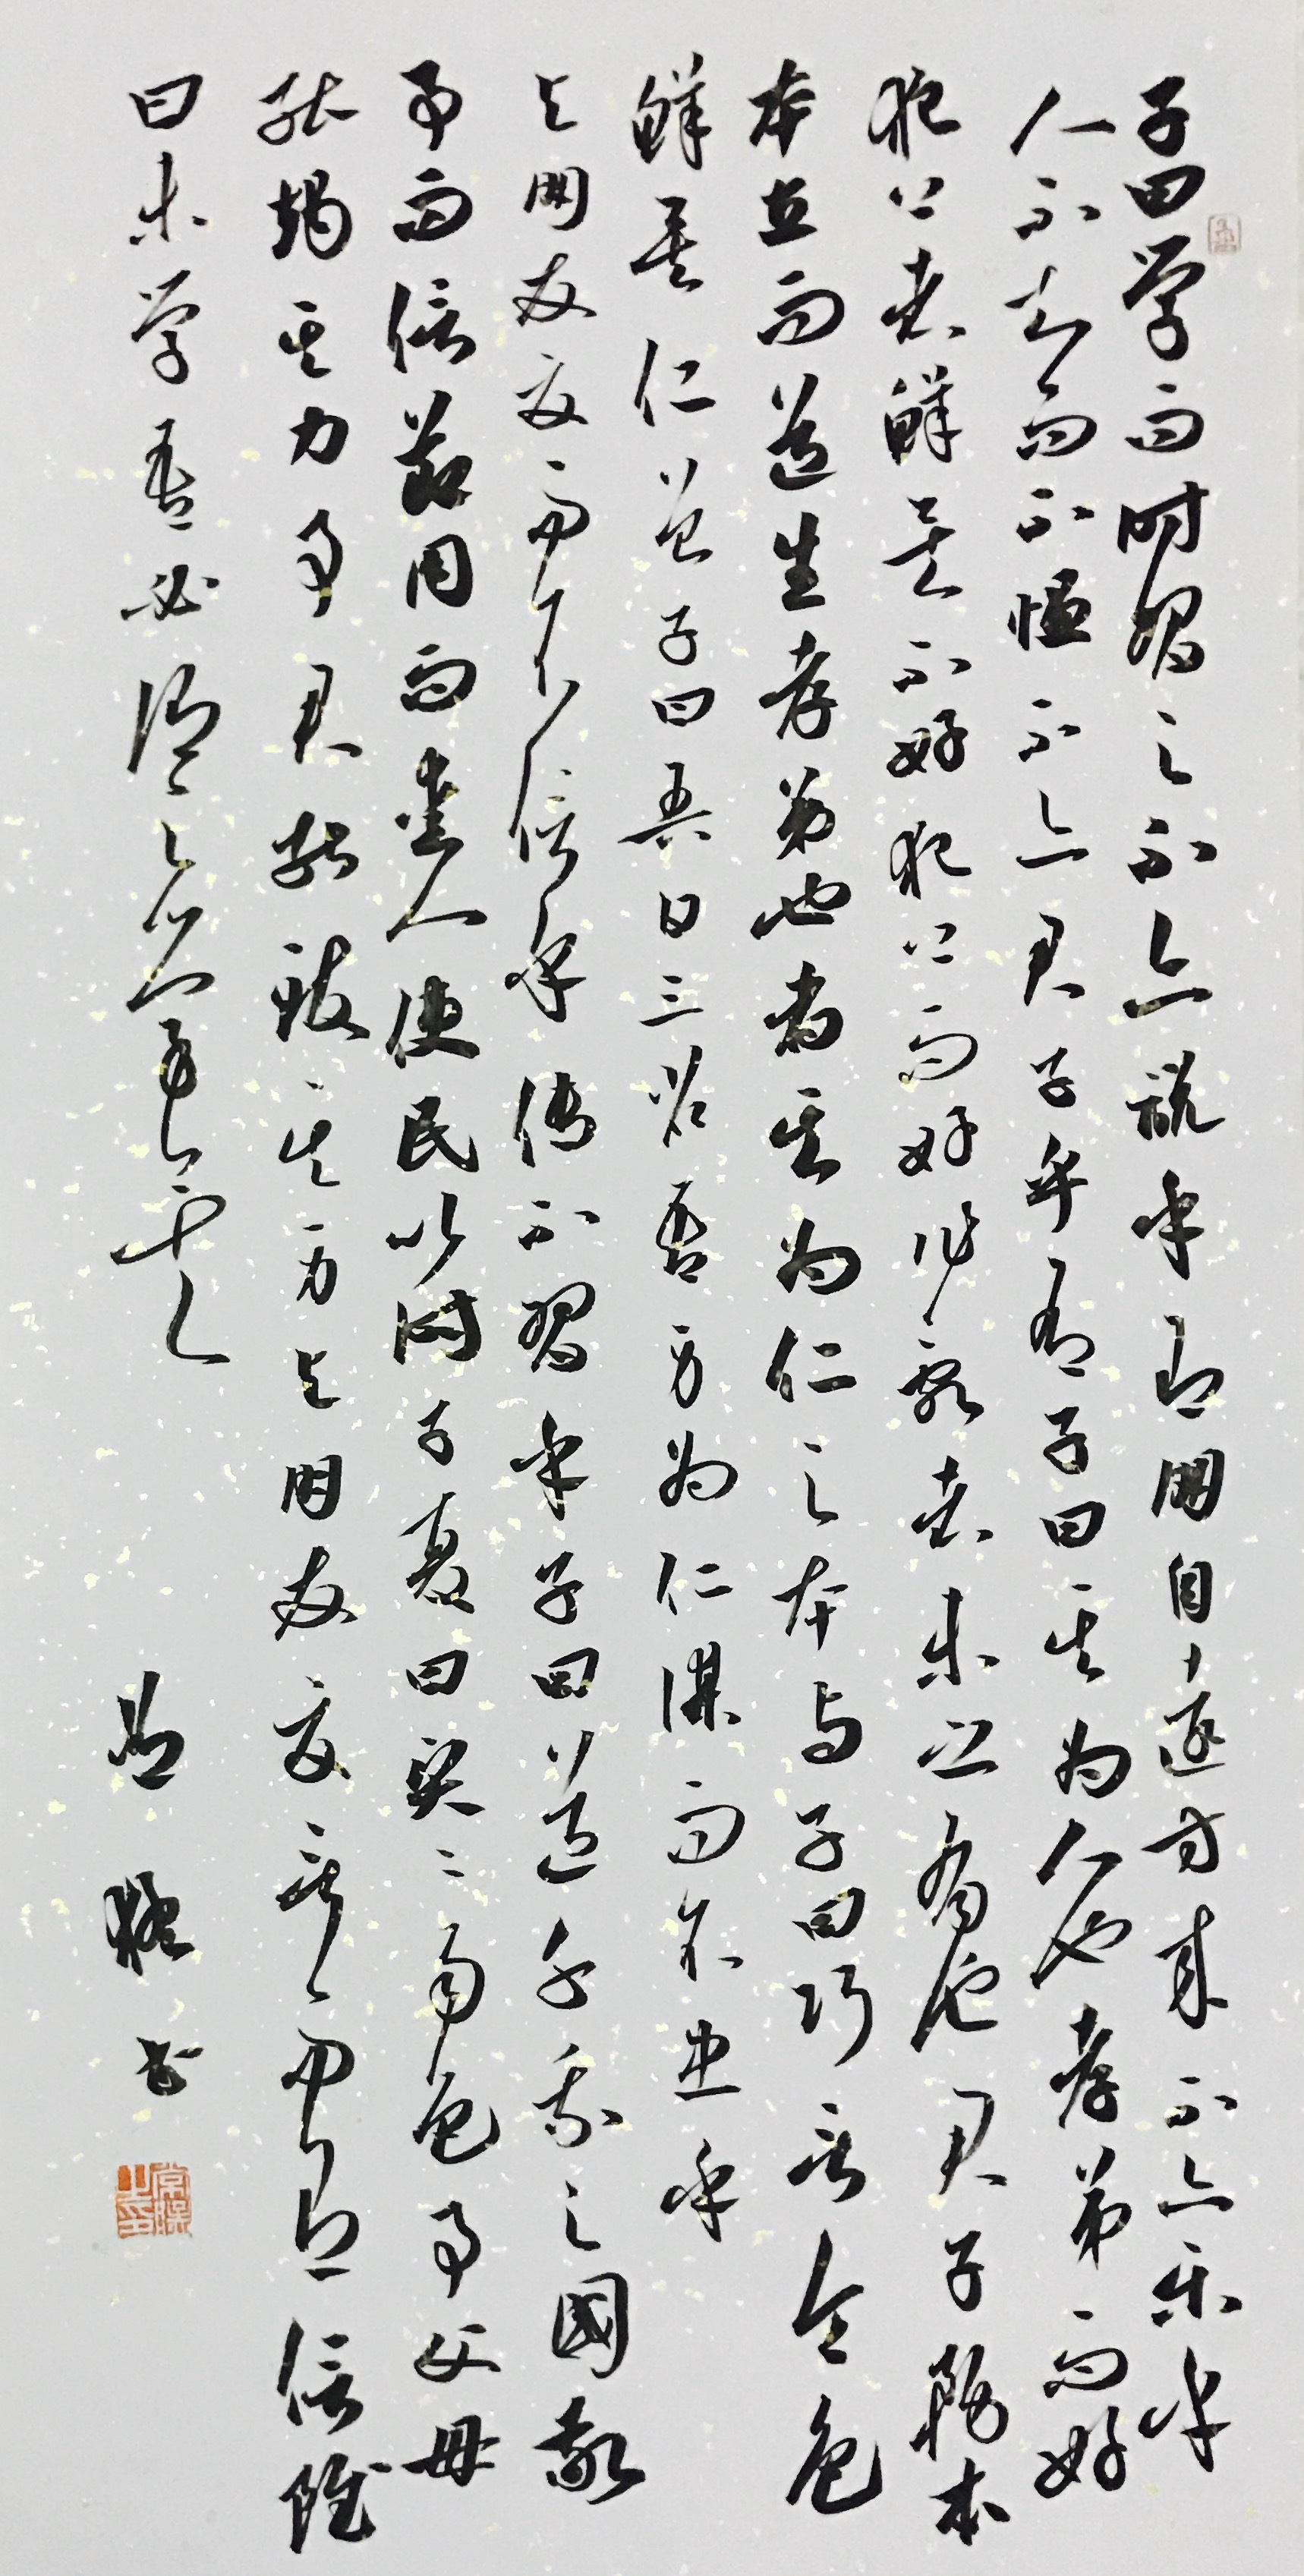 子曰学而时習之不亦說乎有朋自遠方来不亦乐乎
人不知而不慍不亦君子乎有子曰其为人也孝弟而好
犯上者鲜矣不好犯上而好作亂者未之有也君子務本
本立而道生孝弟也者其为仁之本与子曰巧言令色
鲜矣仁曾子曰吾日三省吾身为仁謀而不忠乎
与朋友交而不信乎傳不習乎子曰道千乘之國敬
事而信節用而爱人使民以时子夏曰賢賢易色事父母
能竭其力事君能致其身与朋友交言而有信雖
曰未学吾必謂之学矣
書